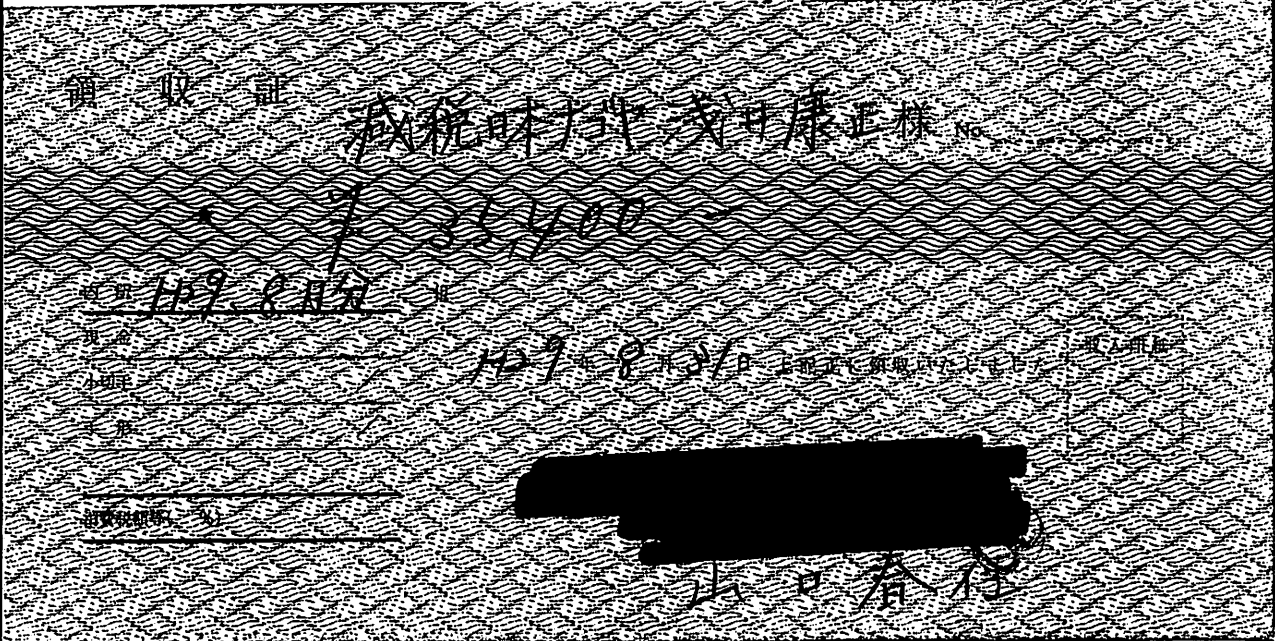 領収証
減税日本ナゴヤ 浅井康正様 No.
★ ¥ 35,400 ー
内訳 H29.8月分 担
現金
小切手
手形
消費税額等( %)
H29年8月31日 上記正に領収いたしました
収入印紙
山口春